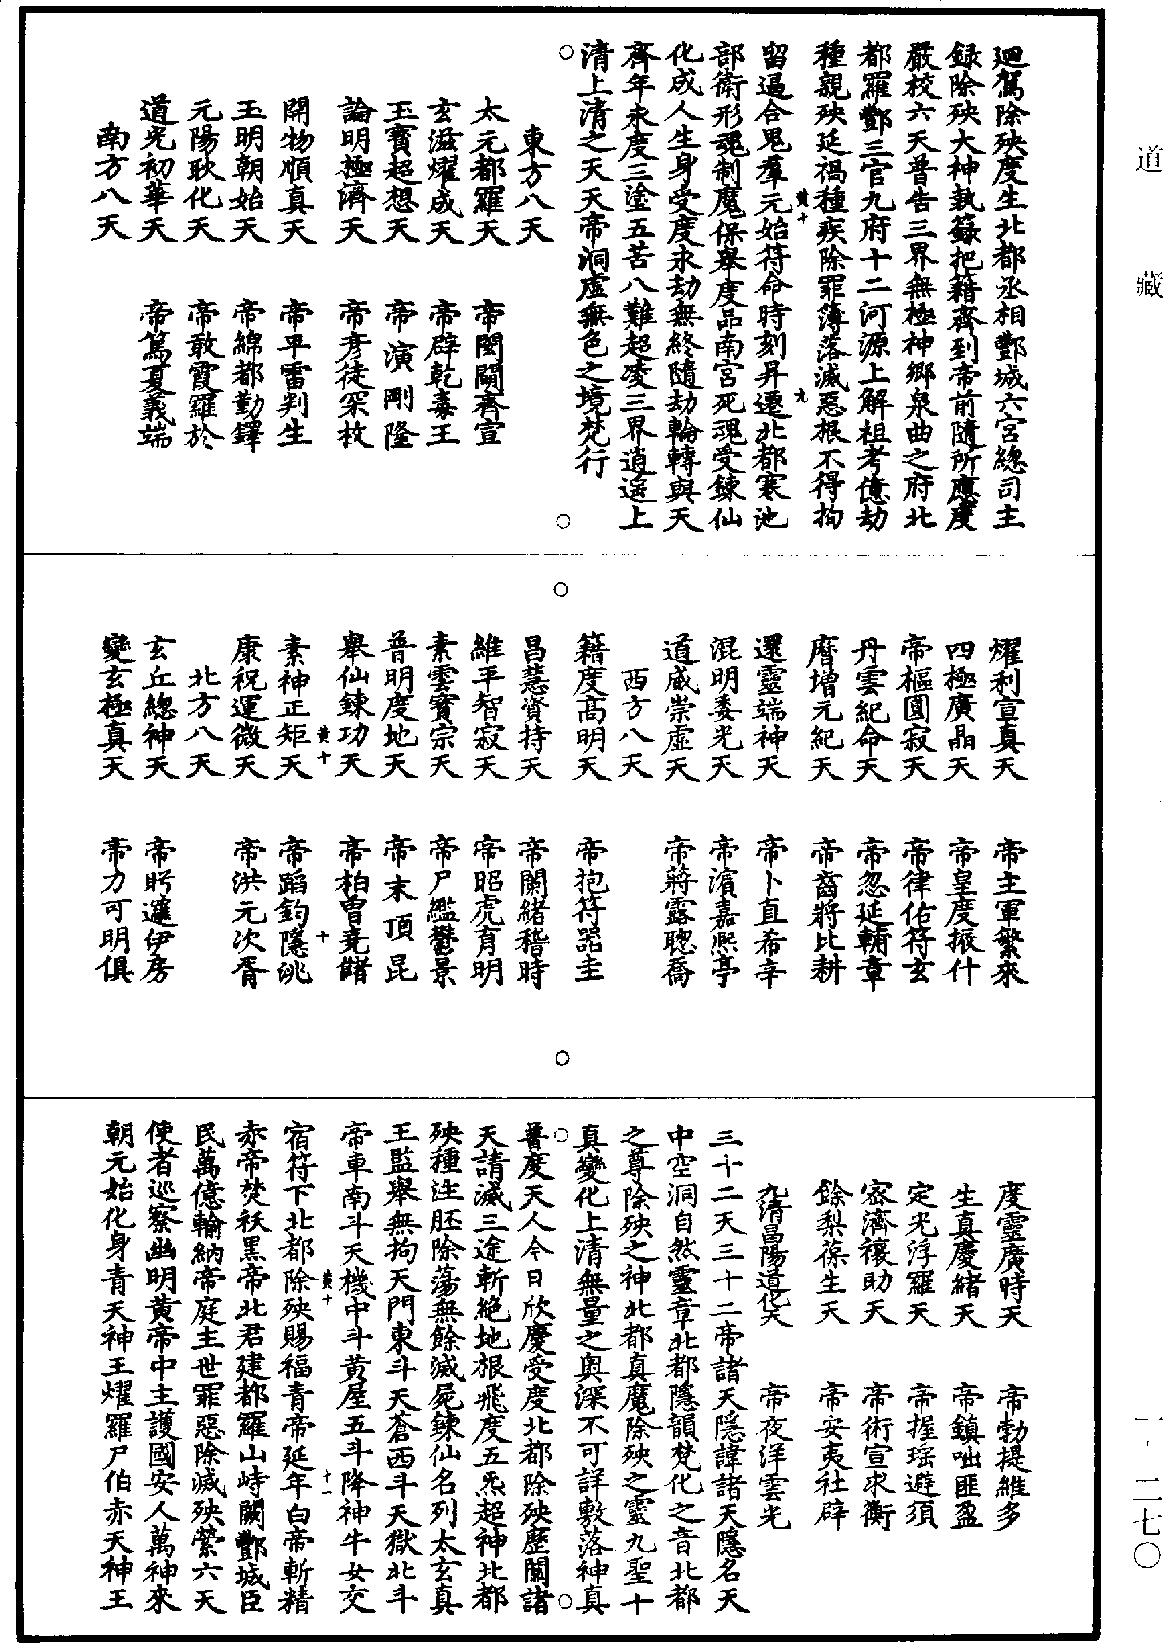 道藏
迴駕除殃度生北都丞相酆城六宮總司主
録除殃大神執籙把籍齊到帝前隨所應度
嚴校六天普告三界無極神鄉泉曲之府北
都羅酆三官九府十二河源上解祖考億劫
種親殃延禍種疾除罪簿落滅惡根不得拘
留逼合鬼羣元始符命時刻昇遷北都寒池
部衛形魂制魔保舉度品南宮死魂受鍊仙
化成人生身受度永劫無終隨劫輪轉與天
齊年永度三塗五苦八難超凌三界逍遥上
清上清之天天帝洞虛無色之境梵行
東方八天
太元都羅天　帝閔闢齊宣
玄滋燿成天　帝辟乾毒王
玉寳超想天　帝演剛隆
論明極濟天　帝彦徒罙枚
開物順真天　帝平雷判生
玉明朝始天　帝綿都勤鐸
元陽耿化天　帝敢霞羅於
道光初華天　帝篤夏義端
南方八天
燿利宣真天　帝主軍繁來
四極廣晶天　帝皇度振什
帝樞圓寂天　帝律佑符玄
丹雲紀命天　帝忽延輔章
曆增元紀天　帝齋將比耕
還靈端神天　帝卜直希辛
混明委光天　帝濱嘉熙亭
道威崇虛天　帝蔣露聰喬
西方八天
籍度高明天　帝抱符器圭
昌慧資持天　帝闌緒稽時
維平智寂天　帝昭虎育明
素雲寳宗天　帝尸鑑鬱景
普明度地天　帝末頂昆
舉仙鍊功天　帝柏曾竟儲
素神正矩天　帝蹈釣隱洮
康祝運微天　帝洪元次胥
北方八天
玄丘總神天　帝盻邏伊房
變玄極真天　帝力可明俱
度靈廣時天　帝勃提維多
生真慶緒天　帝鎮咄匪盈
定光浮羅天　帝握瑶避須
宻濟禳助天　帝術宣求衡
餘梨葆生天　帝安夷社辟
九清昌陽道化天　帝夜洋雲光
三十二天三十二帝諸天隱諱諸天隱名天
中空洞自然靈章北都隱韻梵化之音北都
之尊除殃之神北都真魔除殃之靈九聖十
真變化上清無量之奥深不可詳敷落神真
普度天人今日欣慶受度北都除殃歷關諸
天請滅三途斬絶地根飛度五炁超神北都
殃種注胚除蕩無餘滅屍鍊仙名列太玄真
王監舉無拘天門東斗天蒼西斗天獄北斗
帝車南斗天機中斗黄屋五斗降神牛女交
宿符下北都除殃賜福青帝延年白帝斬精
赤帝焚祅黒帝北君建都羅山峙闕酆城臣
民萬億輸納帝庭主世罪惡除滅殃縈六天
使者巡察幽明黄帝中主護國安人萬神來
朝元始化身青天神王燿羅尸伯赤天神王
一・二七〇